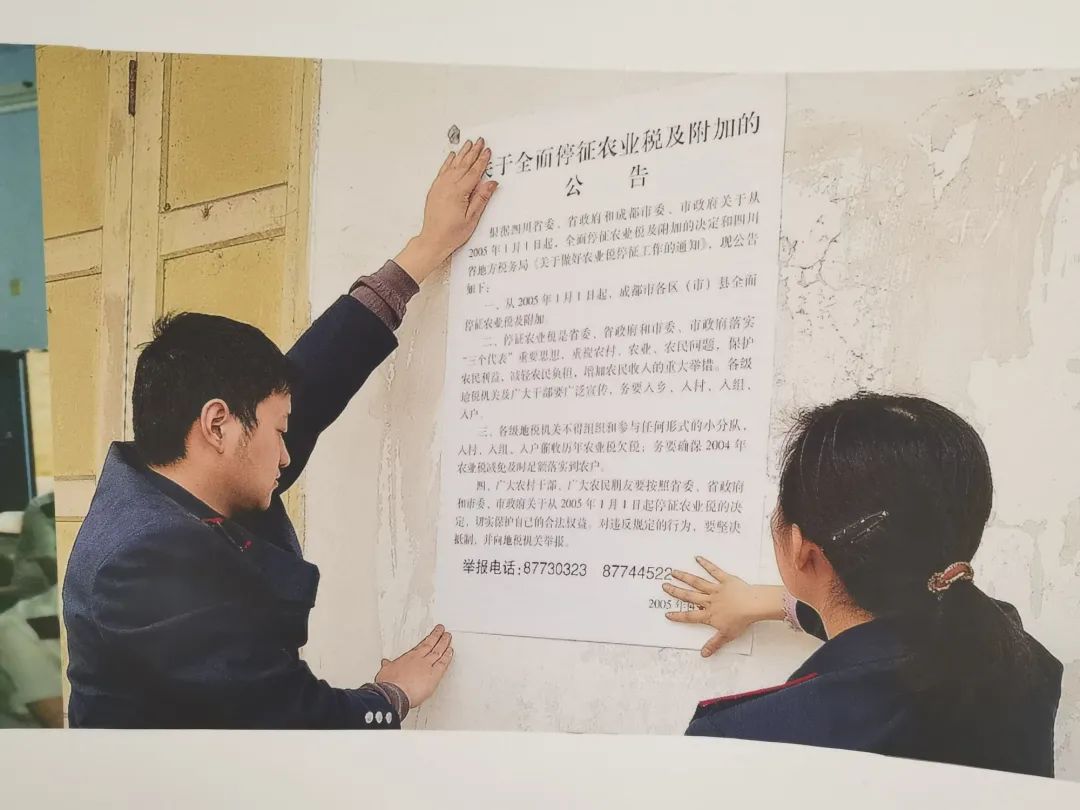 关于全面停征农业税及附加的
公 告
根据四川省委、省政府和成都市委、市政府关于从
2005年1月1日起，全面停征农业税及附加的决定和四川
省地方税务局《关于做好农业税停征工作的通知》，现公告
如下：
一、从2005年1月1日起，成都市各区（市）县全面
停征农业税及附加。
二、停征农业税是省委、省政府和市委、市政府落实
“三个代表”重要思想，重视农村、农业、农民问题，保护
农民利益，减轻农民负担，增加农民收入的重大举措。各级
地税机关及广大干部要广泛宣传，务要入乡、入村、入组、
入户。
三、各级地税机关不得组织和参与任何形式的小分队，
入村、入组、入户催收历年农业税欠税；务要确保2004年
农业税减免及时足额落实到农户。
四、广大农村干部、广大农民朋友要按照省委、省政府
和市委、市政府关于从2005年1月1日起停征农业税的决
定，切实保护自己的合法权益。对违反规定的行为，要坚决
抵制，并向地税机关举报。
举报电话：87730323 87744522
2005年